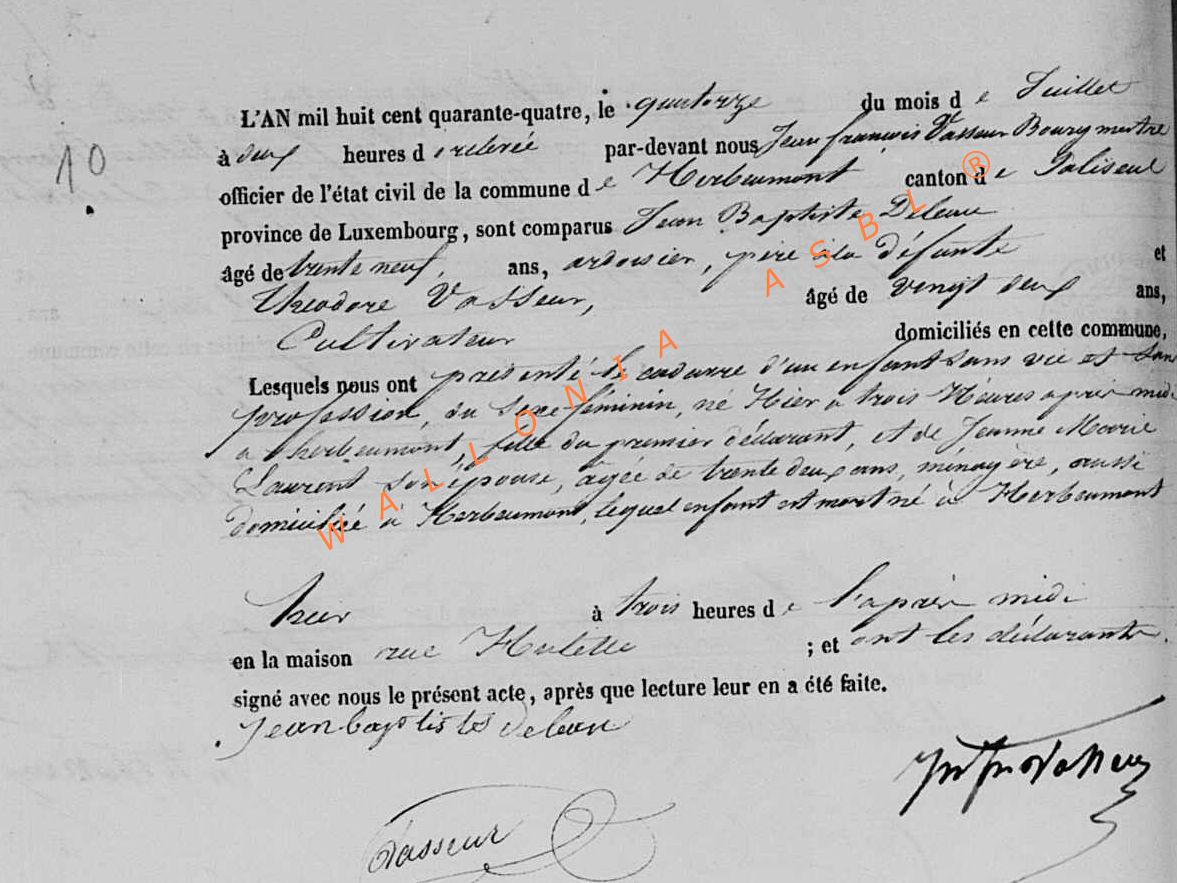 L'AN mil huit cent quarante-quatre, le quatorze du mois de Juillet
10
à deux heures de relevée par-devant nous Jean françois Vasseur Bourgmestre
officier de l'état civil de la commune de Herbeumont canton de Paliseul
province de Luxembourg, sont comparus Jean Baptiste Deleau
âgé de trente neuf. ans, ardoisier, père à la défunte et
Théodore Vasseur, âgé de vingt deux ans,
Cultivateur domiciliés en cette commune,
Lesquels nous ont présenté le cadavre d'un enfant sans vie et sans
profession, du sexe féminin, né Hier à trois Heures après midi
à herbeumont, fille du premier déclarant, et de Jeanne Marie
Laurent son épouse, agée de trente deux ans, ménagère, aussi
domiciliée à Herbeumont, lequel enfant est mort né à Herbeumont
hier à trois heures de l'après midi
en la maison rue Hulette ; et ont les déclarants.
signé avec nous le présent acte, après que lecture leur en a été faite.
jean baptiste deleau
Vasseur
WALLONIA ASBL ®